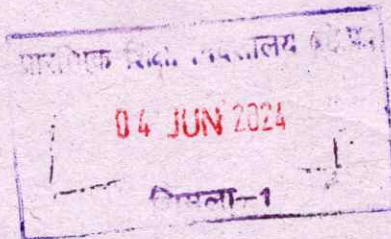 प्रारम्भिक शिक्षा निदेशालय (हि.प्र.)
04 JUN 2024
शिमला-1